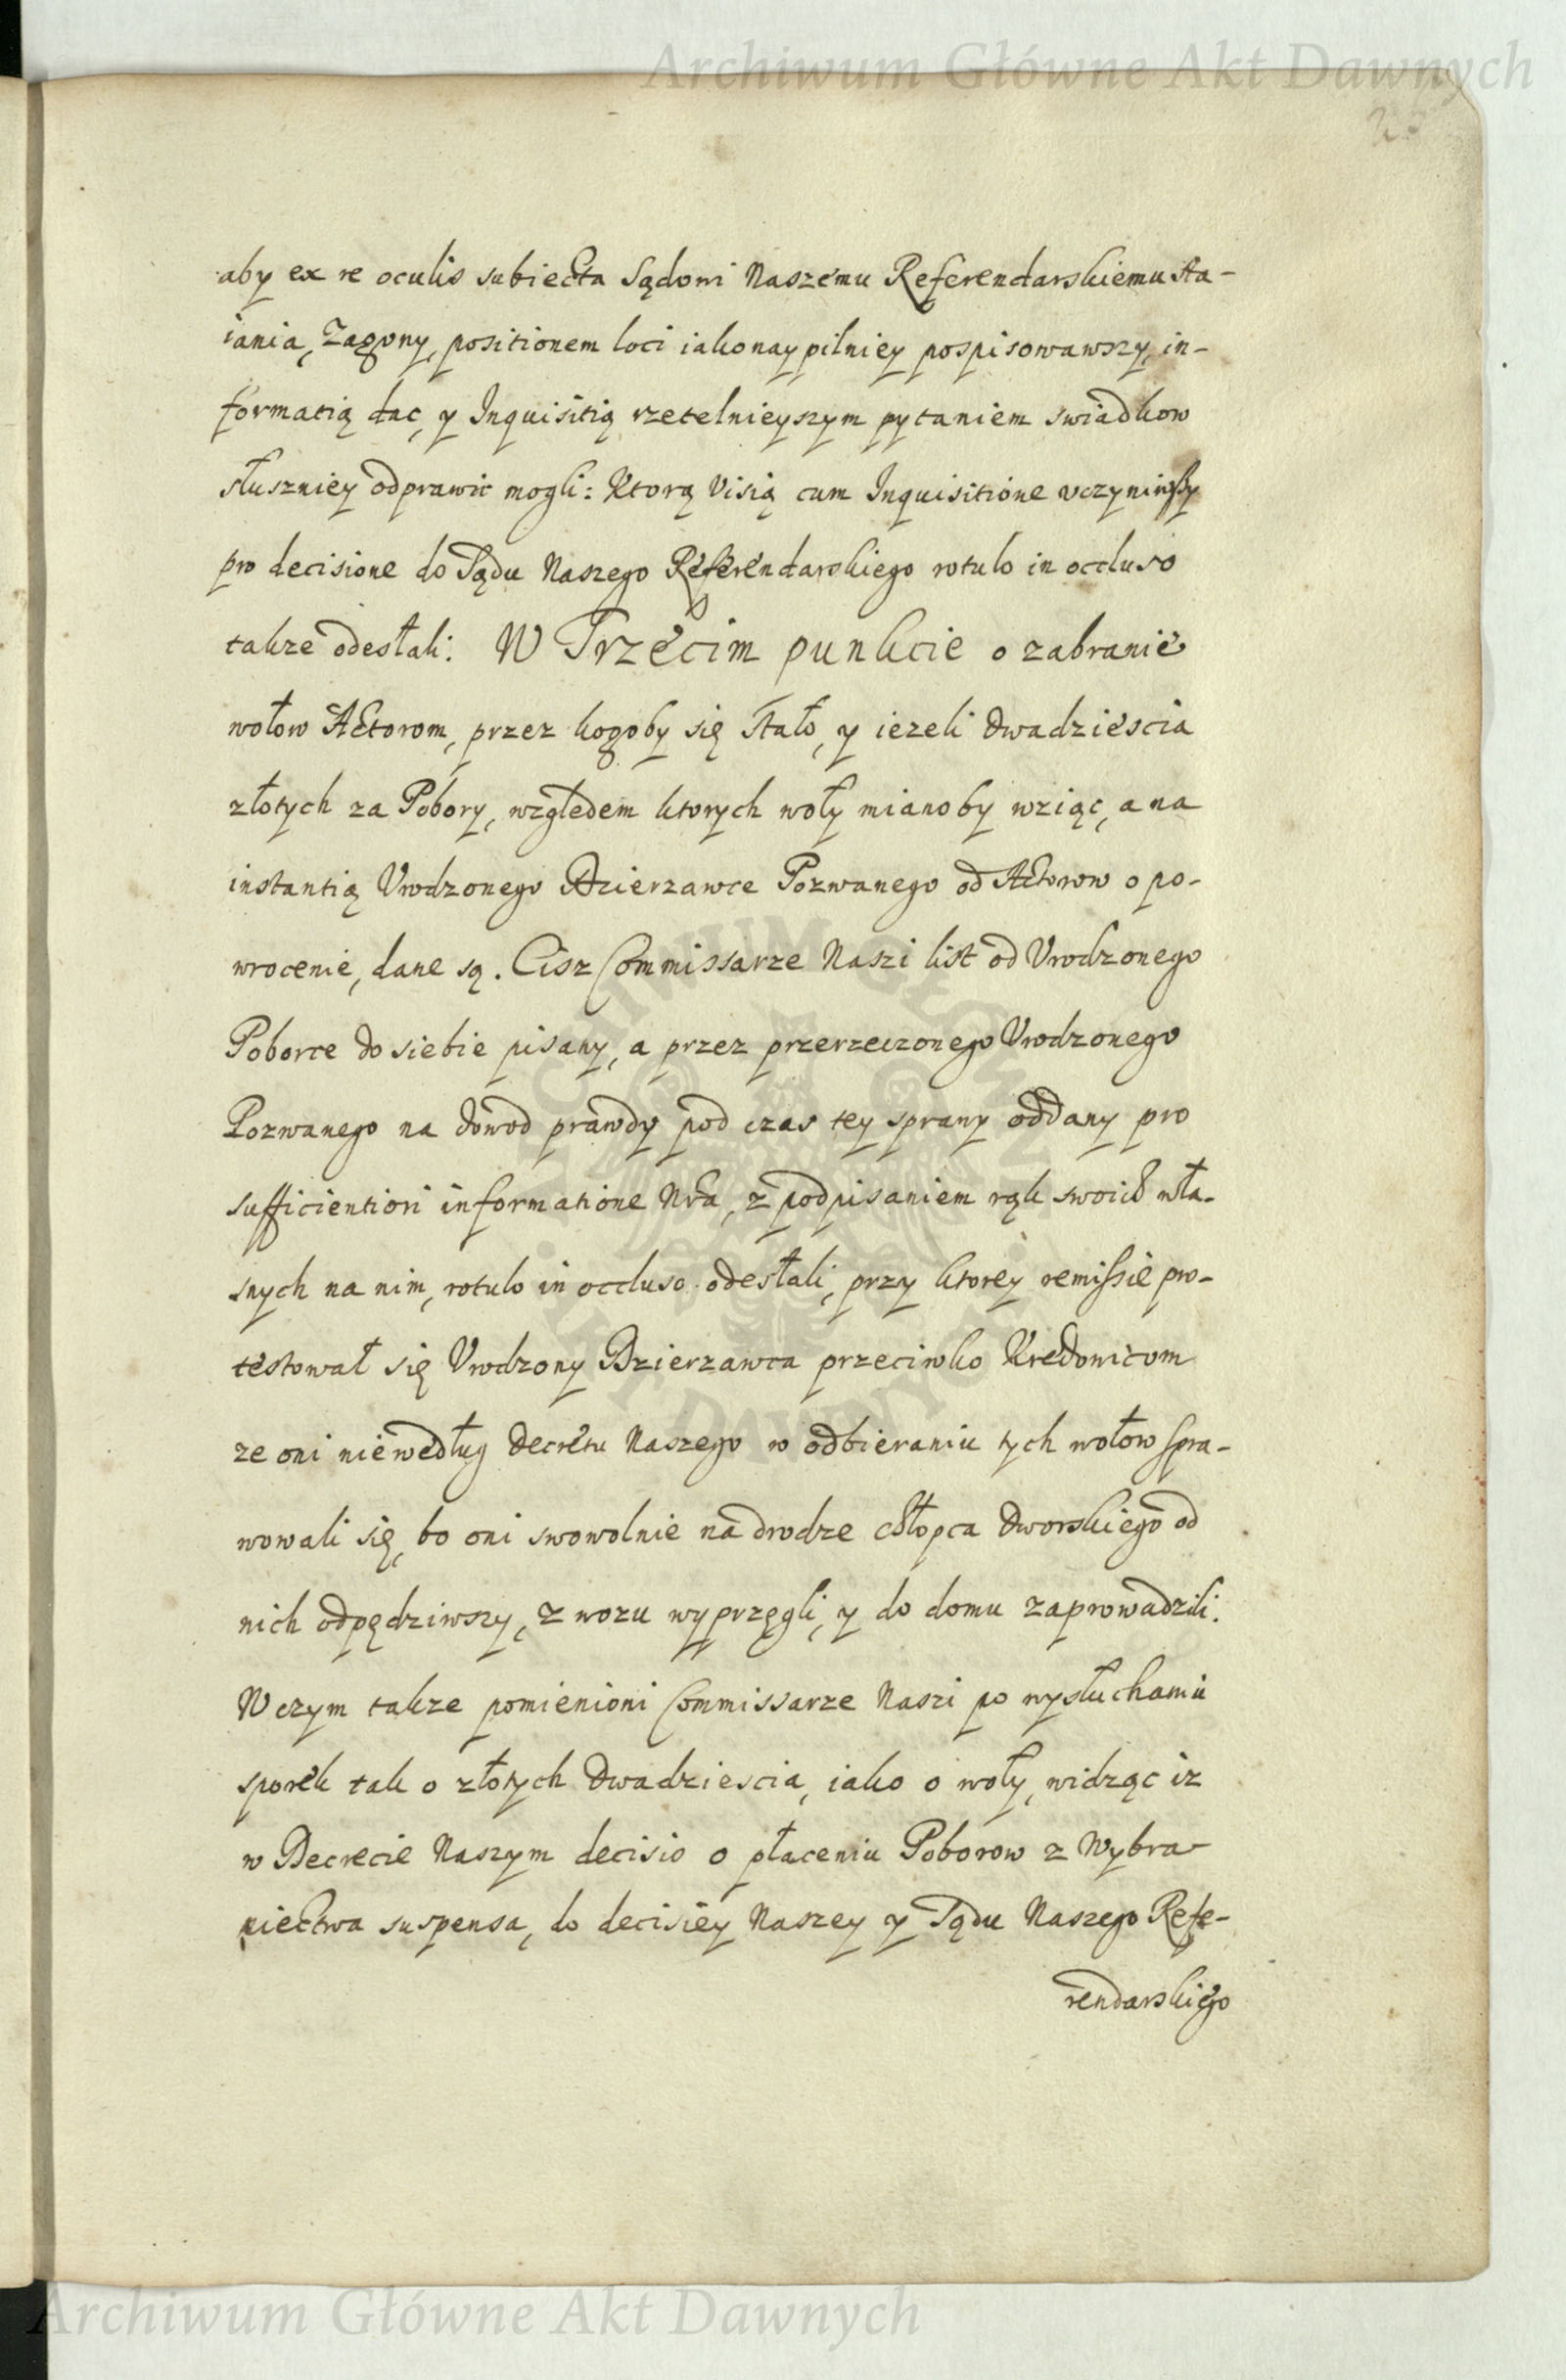 Archiwum Główne Akt Dawnych
aby ex re oculis subiecta Sądowi Naszemu Referendarskiemu sta-
iania, Zagony, positionem loci iako naypilniey pospisowawszy, in-
formatią dac, y Inquisitią rzetelnieyszym pytaniem swiadkow
słuszniey odprawic mogli: Ktorą Visią cum Inquisitione uczyniwszy
pro decisione do Sądu Naszego Referendarskiego rotulo in occluso
takze odesłali: W Trzecim punkcie o zabranie
wołow Actorom, przez kogoby się stało, y iezeli dwadziescia
złotych za Pobory, względem ktorych woły mianoby wziąc, a na
instantią Urodzonego Dzierzawce Pozwanego od Actorow o po-
wrocenie, dane są. Cisz Commissarze Naszi list od Urodzonego
Poborce do siebie pisany, a przez przerzeczonego Urodzonego
Pozwanego na dowod prawdy pod czas tey sprawy oddany pro
sufficientiori informatione Nra, z podpisaniem rąk swoich wła-
snych na nim, rotulo in occluso odesłali, przy ktorey remissie pro-
testował się Urodzony Dzierzawca przeciwko Kredowicom
ze oni niewedług decretu Naszego w odbieraniu tych wołow spra-
wowali się, bo oni swowolnie na drodze chłopca dworskiego od
nich odpędziwszy, z wozu wyprzęgli, y do domu zaprowadzili.
W czym takze pomienioni Commissarze Naszi po wysłuchaniu
sporek tak o złotych dwadziescia, iako o woły, widząc iz
w Decrecie Naszym decisio o płaceniu Poborow z Wybra-
niectwa suspensa, do decisiey Naszey y Sądu Naszego Refe-
rendarskiego
Archiwum Główne Akt Dawnych